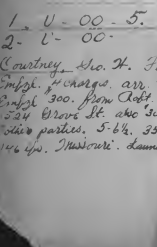 1 U - 00 - 5.
2 - U - 00 -
Courtney, Geo. H.
Embzl. 4 charges. arr.
Embzl 300. from Robt.
1524 Grove St. also
other parties. 5-6½. 35
146 lbs. Missouri. Laun